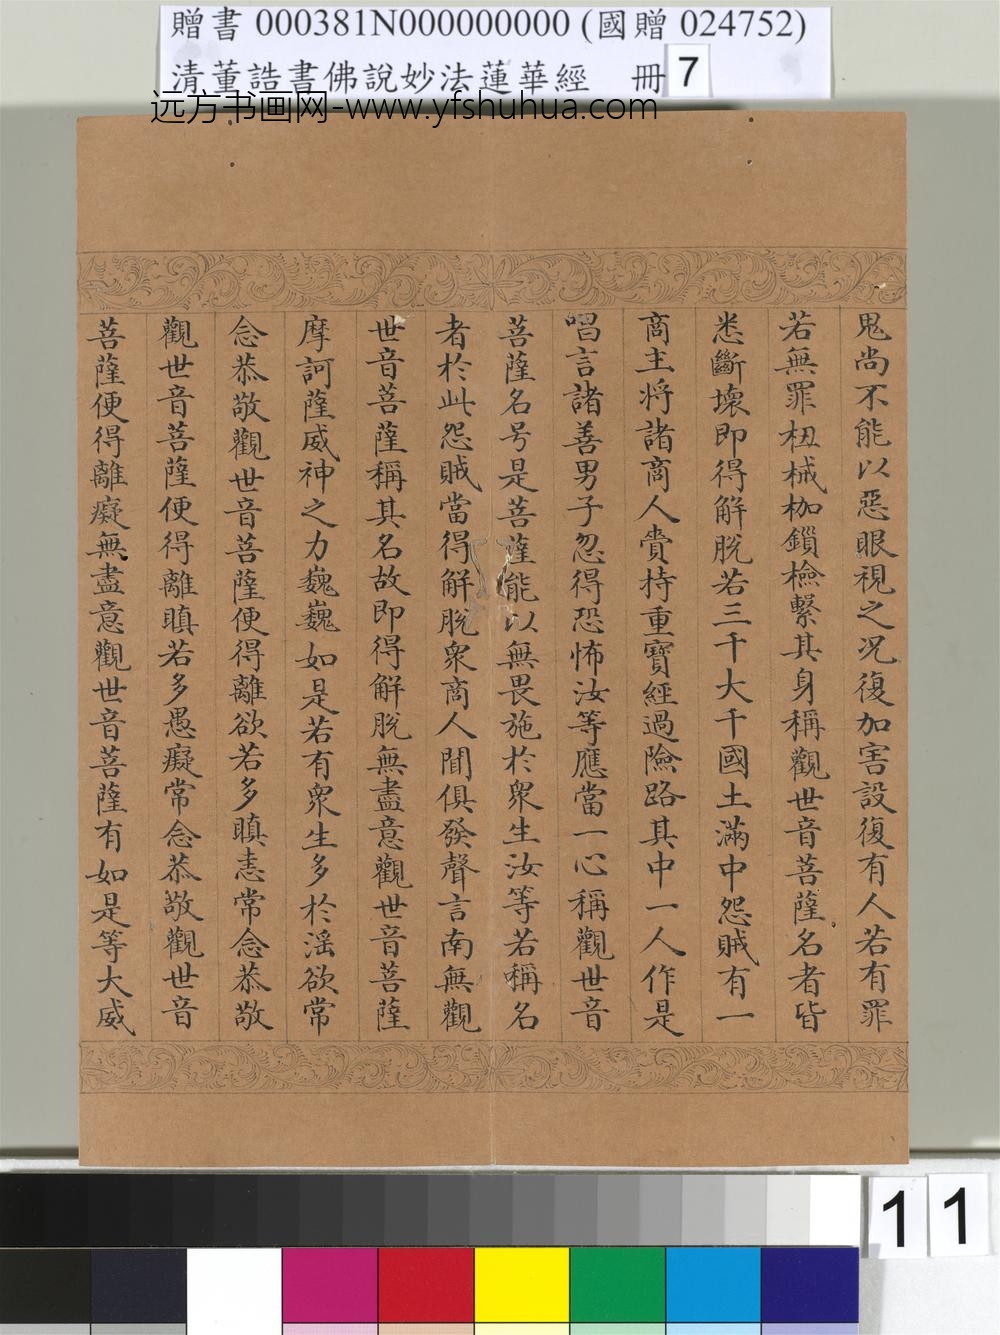 贈書 000381N000000000 (國贈 024752)
清董誥書佛說妙法蓮華經 冊 7
远方书画网-www.yfshuhua.com
鬼尚不能以惡眼視之况復加害設復有人若有罪
若無罪杻械枷鎖檢繫其身稱觀世音菩薩名者皆
悉斷壞即得解脫若三千大千國土滿中怨賊有一
商主将諸商人賫持重寶經過險路其中一人作是
唱言諸善男子忽得恐怖汝等應當一心稱觀世音
菩薩名号是菩薩能以無畏施於衆生汝等若稱名
者於此怨賊當得解脫衆商人聞俱發聲言南無觀
世音菩薩稱其名故即得解脫無盡意觀世音菩薩
摩訶薩威神之力巍巍如是若有衆生多於淫欲常
念恭敬觀世音菩薩便得離欲若多瞋恚常念恭敬
觀世音菩薩便得離瞋若多愚癡常念恭敬觀世音
菩薩便得離癡無盡意觀世音菩薩有如是等大威
11